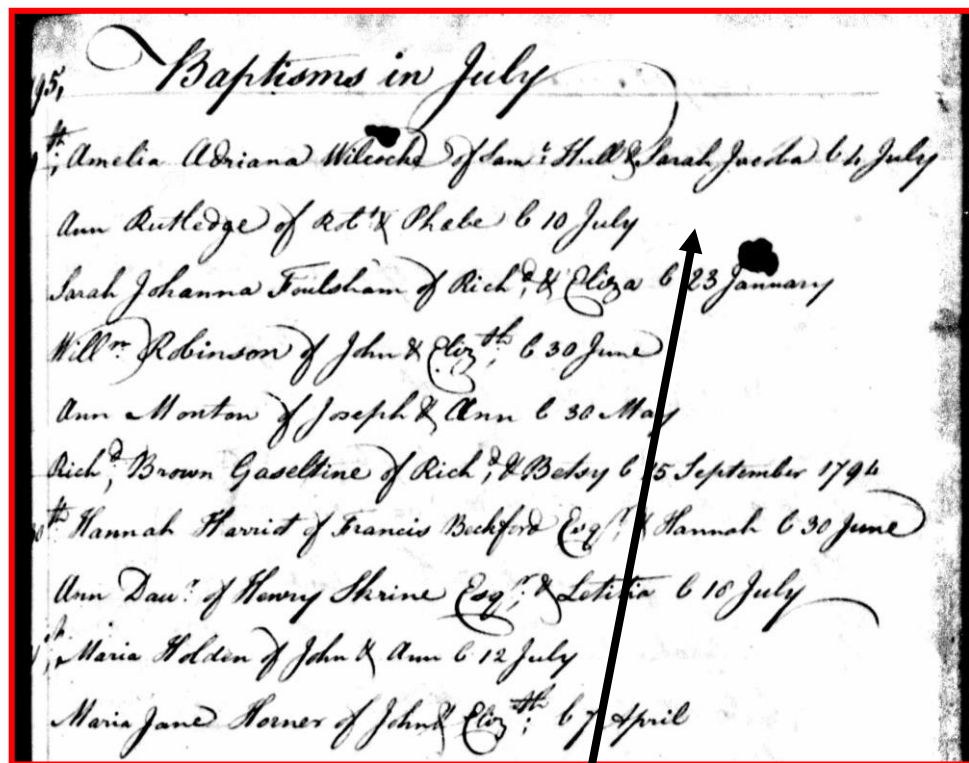 95, Baptisms in July
th; Amelia Adriana Wilcocks of Sam:l Hull & Sarah Jacoba b 4 July
Ann Rutledge of Rob:t & Phabe b 10 July
Sarah Johanna Foulsham of Rich:d & Eliza b 23 January
Will:m Robinson of John & Eliz:th b 30 June
Ann Monton of Joseph & Ann b 30 May
Rich:d Brown Gaseltine of Rich:d & Betsy b 15 September 1794
th Hannah Harriot of Francis Beckford Esq:r & Hannah b 30 June
Ann Dau:r of Henry Skrine Esq:r & Letitia b 18 July
th; Maria Holden of John & Ann b 12 July
Maria Jane Horner of John & Eliz:th b 7 April